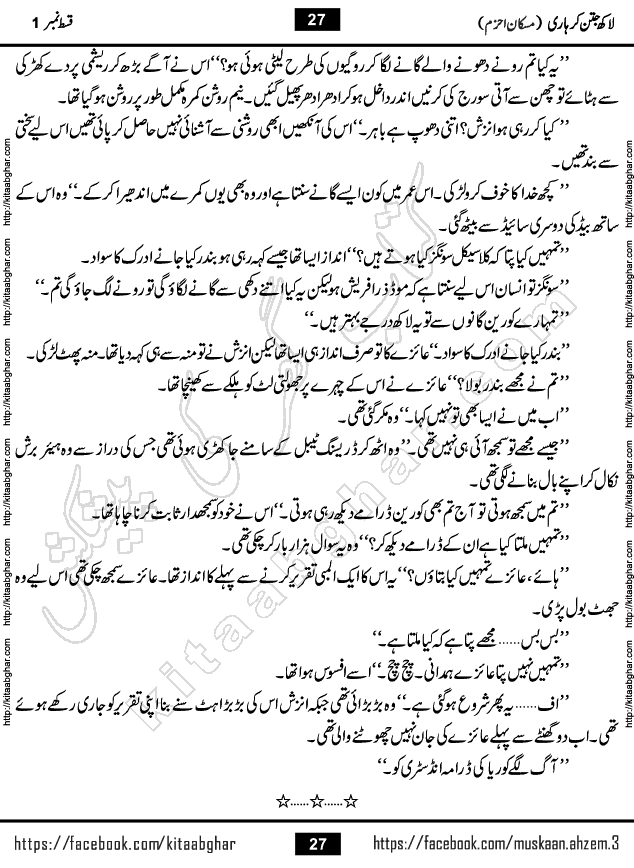 لاکھ جتن کر ہاری (مسکان احزم)
27
قسط نمبر 1
’’یہ کیا تم رونے دھونے والے گانے لگا کر روگیوں کی طرح لیٹی ہوئی ہو؟‘‘ اس نے آگے بڑھ کر ریشمی پردے کھڑکی
سے ہٹائے تو چھن سے آتی سورج کی کرنیں اندر داخل ہو کر ادھر ادھر پھیل گئیں۔ نیم روشن کمرہ مکمل طور پر روشن ہو گیا تھا۔
’’کیا کر رہی ہو انزش؟ اتنی دھوپ ہے باہر۔‘‘ اس کی آنکھیں ابھی روشنی سے آشنائی نہیں حاصل کر پائی تھیں اس لیے سختی
سے بند تھیں۔
’’کچھ خدا کا خوف کرو لڑکی۔ اس عمر میں کون ایسے گانے سنتا ہے اور وہ بھی یوں کمرے میں اندھیرا کر کے۔‘‘ وہ اس کے
ساتھ بیڈ کی دوسری سائیڈ سے بیٹھ گئی۔
’’تمہیں کیا پتا کہ کلاسیکل سونگز کیا ہوتے ہیں؟‘‘ انداز ایسا تھا جیسے کہہ رہی ہو بندر کیا جانے ادرک کا سواد۔
’’سونگز تو انسان اس لیے سنتا ہے کہ موڈ ذرا فریش ہو لیکن یہ کیا اتنے دکھی سے گانے لگاؤ گی تو رونے لگ جاؤ گی تم۔‘‘
’’تمہارے کورین گانوں سے تو یہ لاکھ درجے بہتر ہیں۔‘‘
’’بندر کیا جانے ادرک کا سواد۔‘‘ عائزے کا تو صرف انداز ہی ایسا تھا لیکن انزش نے تو منہ سے ہی کہہ دیا تھا۔ منہ پھٹ لڑکی۔
’’تم نے مجھے بندر بولا؟‘‘ عائزے نے اس کے چہرے پر جھولتی لٹ کو ہلکے سے کھینچا تھا۔
’’اب میں نے ایسا بھی تو نہیں کہا۔‘‘ وہ مکر گئی تھی۔
’’جیسے مجھے تو سمجھ آئی ہی نہیں تھی۔‘‘ وہ اٹھ کر ڈریسنگ ٹیبل کے سامنے جا کھڑی ہوئی تھی جس کی دراز سے وہ ہیئر برش
نکال کر اپنے بال بنانے لگی تھی۔
’’تم میں سمجھ ہوتی تو آج تم بھی کورین ڈرامے دیکھ رہی ہوتی۔‘‘ اس نے خود کو سمجھدار ثابت کرنا چاہا تھا۔
’’تمہیں ملتا کیا ہے ان کے ڈرامے دیکھ کر؟‘‘ وہ یہ سوال ہزار بار کر چکی تھی۔
’’ہائے، عائزے تمہیں کیا بتاؤں؟‘‘ یہ اس کا ایک لمبی تقریر کرنے سے پہلے کا انداز تھا۔ عائزے سمجھ چکی تھی اس لیے وہ
جھٹ بول پڑی۔
’’بس بس...... مجھے پتا ہے کہ کیا ملتا ہے۔‘‘
’’تمہیں نہیں پتا عائزے ہمدانی۔ چچ چچ۔‘‘ اسے افسوس ہوا تھا۔
’’اف...... یہ پھر شروع ہو گئی ہے۔‘‘ وہ بڑبڑائی تھی جبکہ انزش اس کی بڑبڑاہٹ سنے بنا اپنی تقریر کو جاری رکھے ہوئے
تھی۔ اب دو گھنٹے سے پہلے عائزے کی جان نہیں چھوٹنے والی تھی۔
’’آگ لگے کوریا کی ڈرامہ انڈسٹری کو۔‘‘
☆......☆......☆
https://facebook.com/kitaabghar
27
https://facebook.com/muskaan.ahzem.3
http://kitaabghar.com
http://kitaabghar.com
http://kitaabghar.com
http://kitaabghar.com
http://kitaabghar.com
http://kitaabghar.com
http://kitaabghar.com
http://kitaabghar.com
http://kitaabghar.com
http://kitaabghar.com
http://kitaabghar.com
http://kitaabghar.com
کتاب گھر کی پیشکش
kitaabghar.com